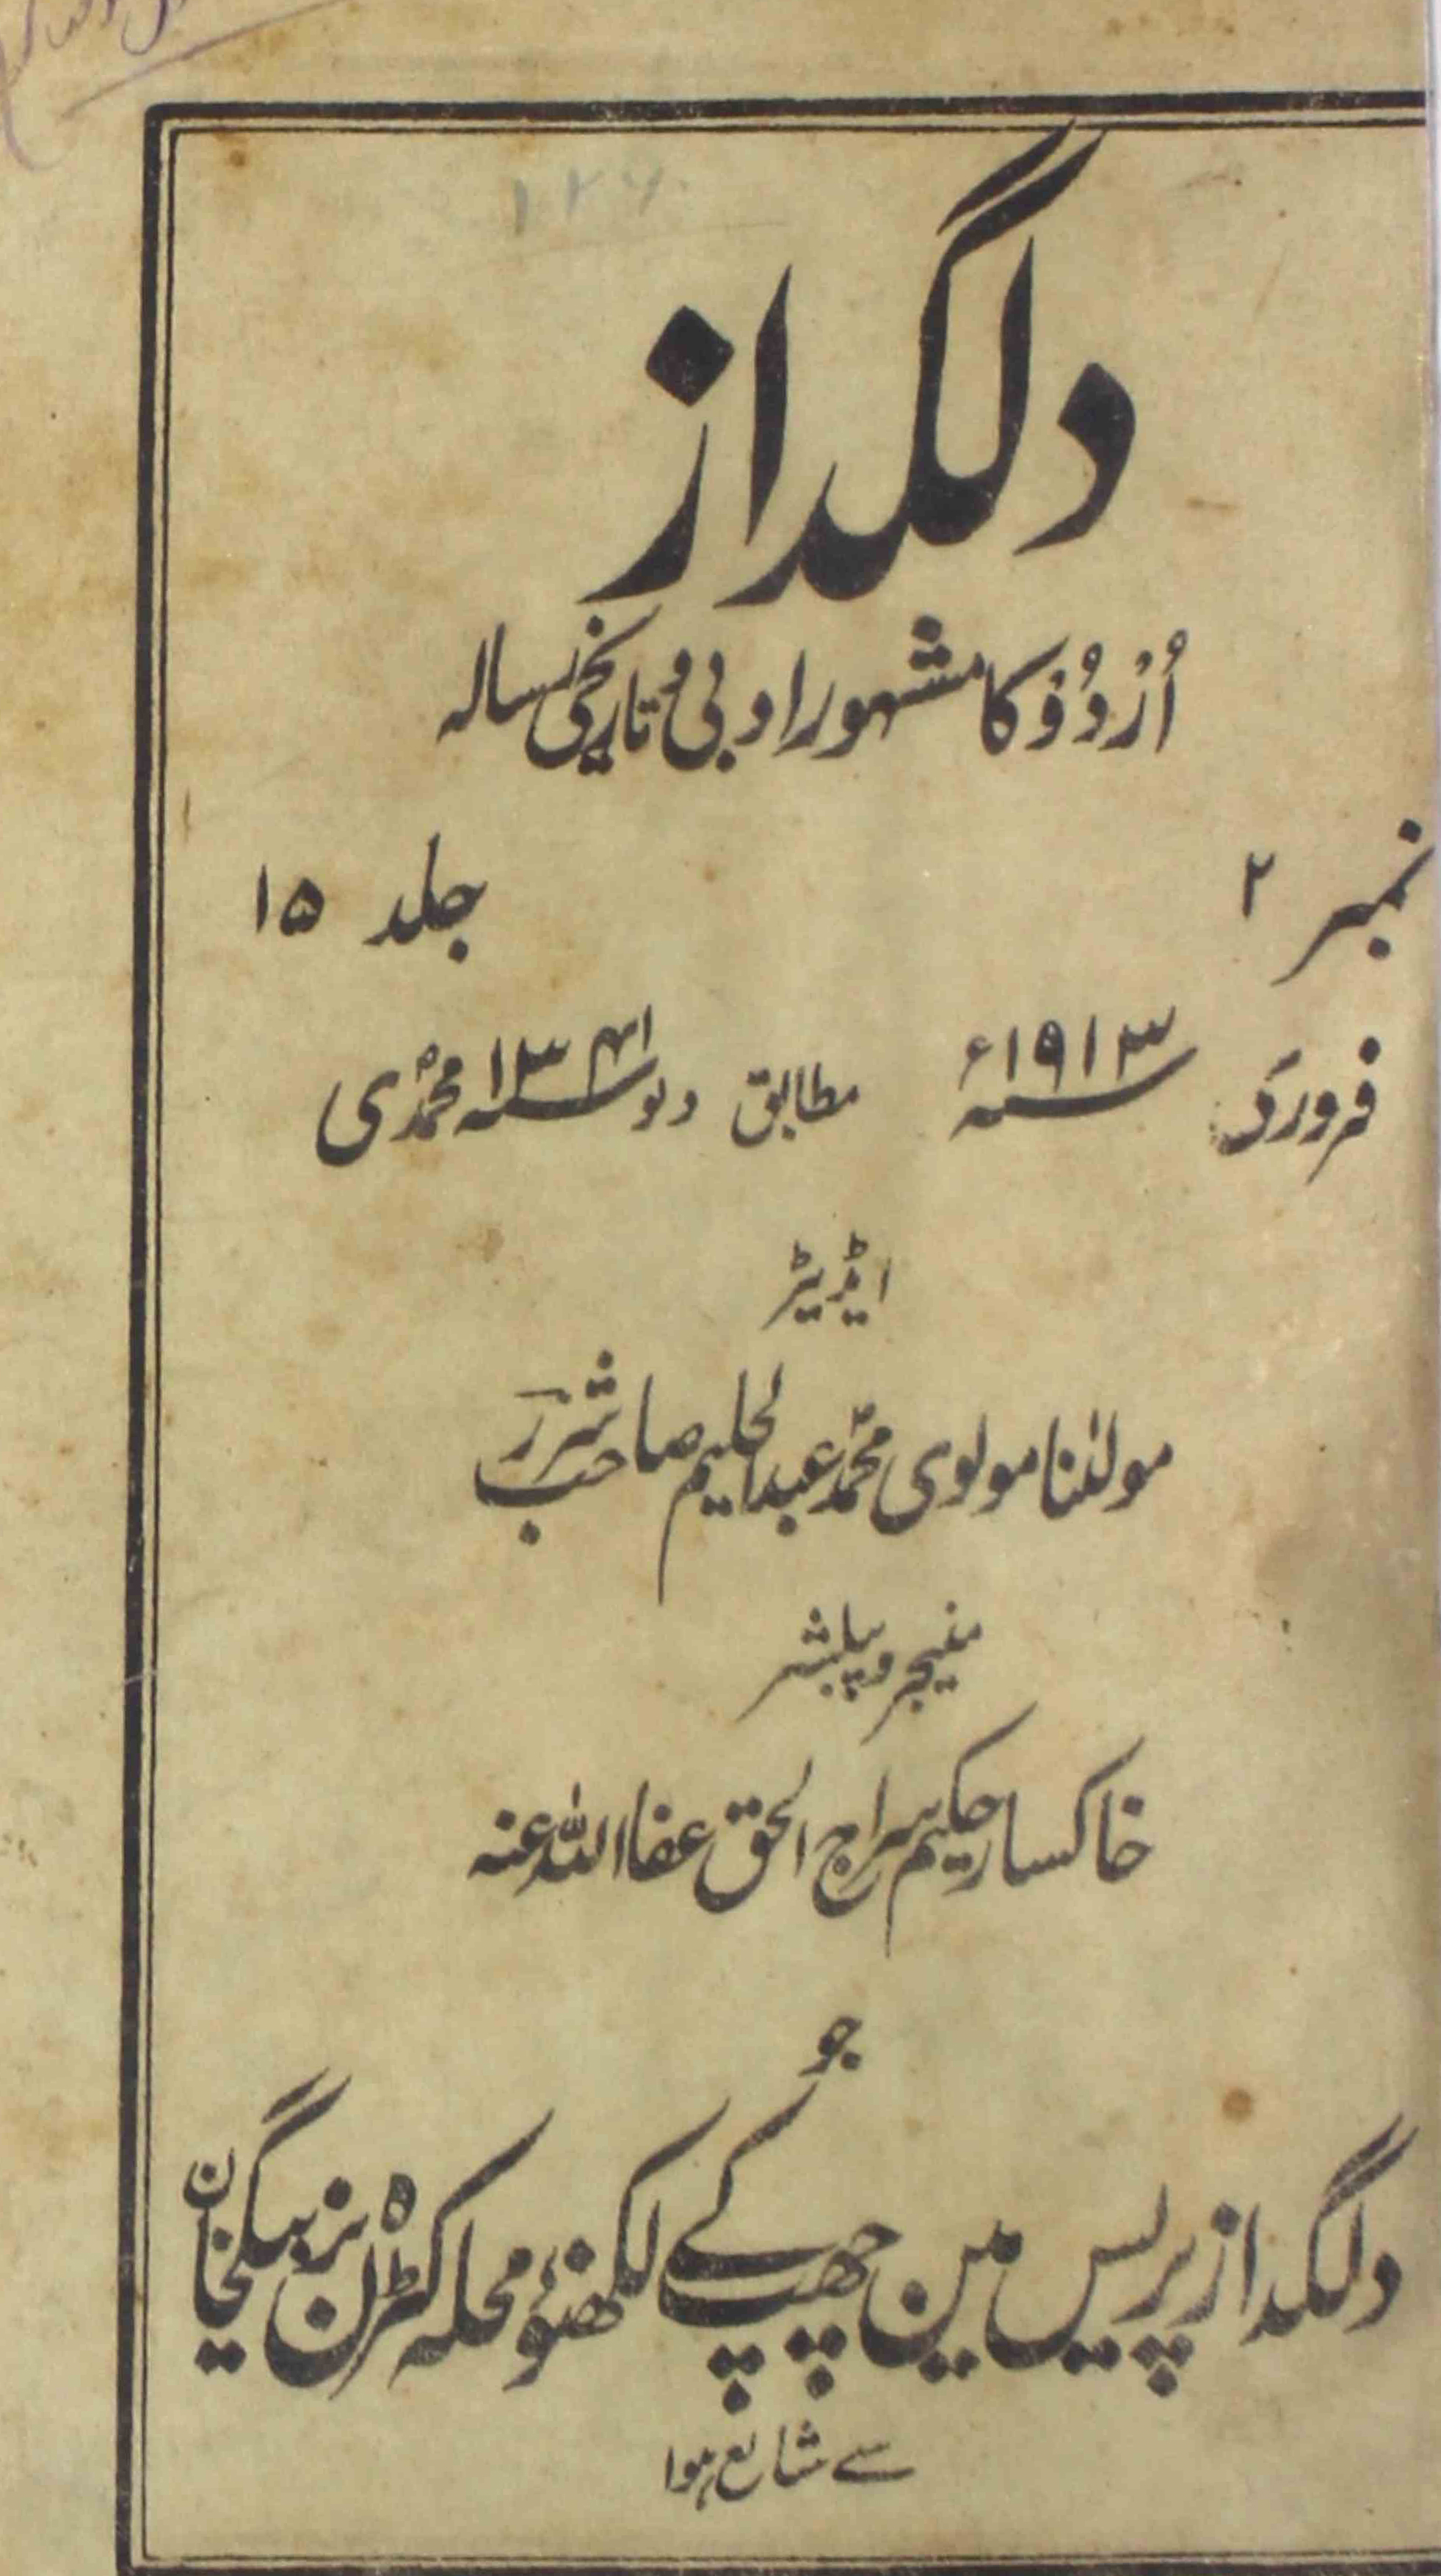 ۱۲۶
دلگداز
اُرْدُوْ کا مشہور ادبی و تاریخی رسالہ
نمبر ۲ جلد ۱۵
فروری سنہ ۱۹۱۳ء مطابق دلو سنہ ۱۳۴۱ محمدی
ایڈیٹر
مولٰنا مولوی محمد عبدالحلیم صاحب شرر
منیجر و پبلشر
خاکسار حکیم سراج الحق عفا اللہ عنہ
جو
دلگداز پریس مین چھپ کے لکھنؤ محلہ کٹرہ بزن بیگخان
سے شایع ہوا